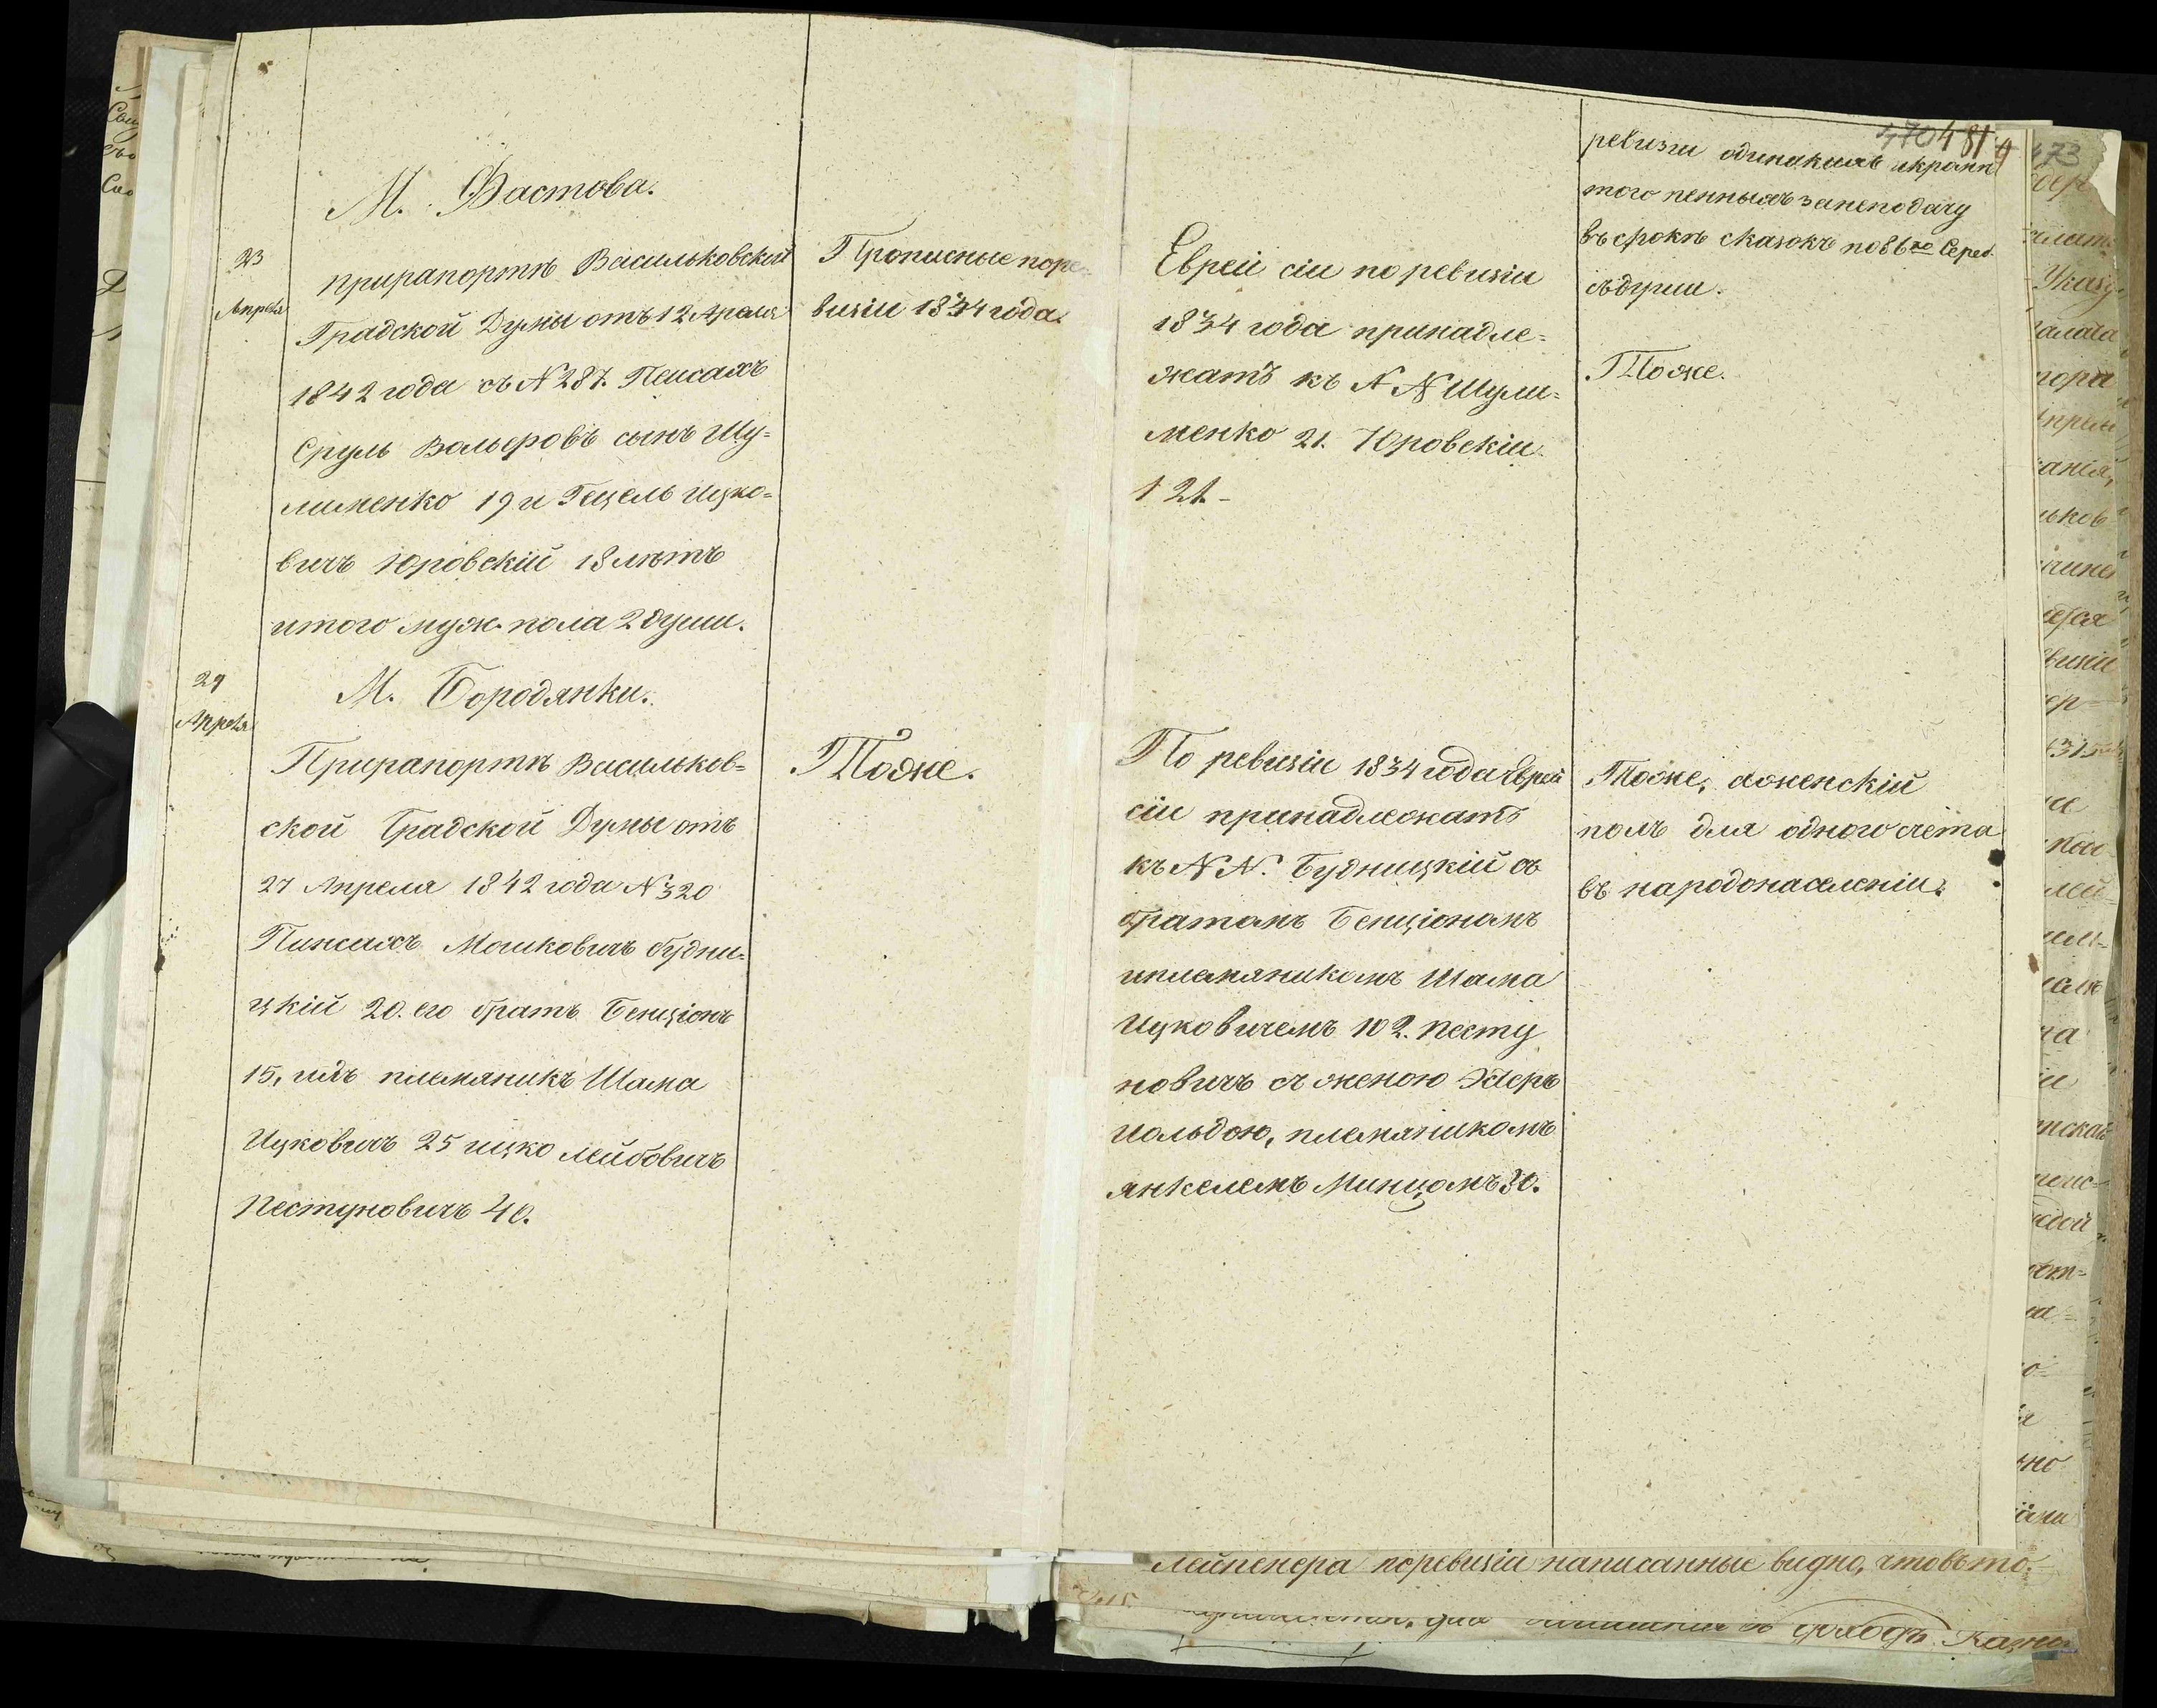 М. Фастова.
23
Апреля
прирапортѣ Васильковской
Градской Думы отъ 12 Апреля
1842 года съ № 287. Пейсахъ
Сруль Вольфовъ сынъ Шу=
лименко 19 и Гецель Ицко=
вичъ Юровскій 18 лѣтъ
итого муж. пола 2 души.
Прописные поре=
визіи 1834 года.
Евреи сіи по ревизіи
1834 года принадле=
жатъ къ N N Шули=
менко 21. Юровскіи
121.-
470 481
ревизіи одинакихъ
того пенныхъ занеподачу
въ срокъ сказокъ по 86 ко Сереб.
съдуши.
Тоже.
29
Апреля
М. Бородянки.
Прирапортѣ Васильков=
ской Градской Думы отъ
27 Апреля 1842 года № 320
Пинхасъ Мошковичъ Будни=
цкій 20. его братъ Бенціонъ
15, ихъ племяникъ Шама
Ицковичъ 25 ицко Лейбовичъ
Пестуновичъ 40.
Тоже.
По ревизіи 1834 года Евреи
сіи принадлежатъ
къ N N. Будницкій съ
братомъ Бенціономъ
иплемяникомъ Шама
Ицковичемъ 102. Песту
новичъ съ женою Эстеръ
Гольдою, племяникомъ
янкелемъ Минцомъ 30.
Тоже, аженскій
полъ для одного счета
въ народонаселеніи.
473
Лейпенера поревизіи написанные видно, чтовъ то=